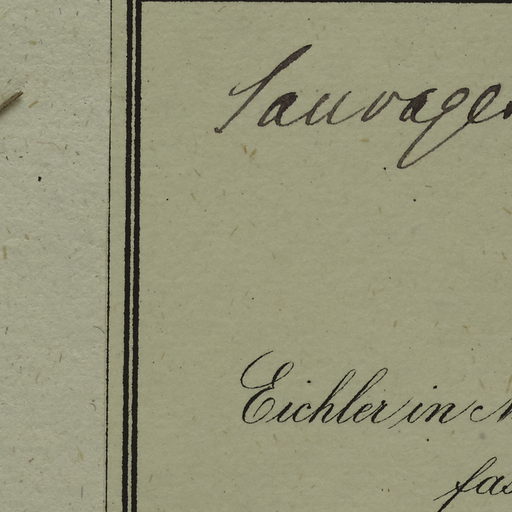 Sauvages
Eichler in M
fas